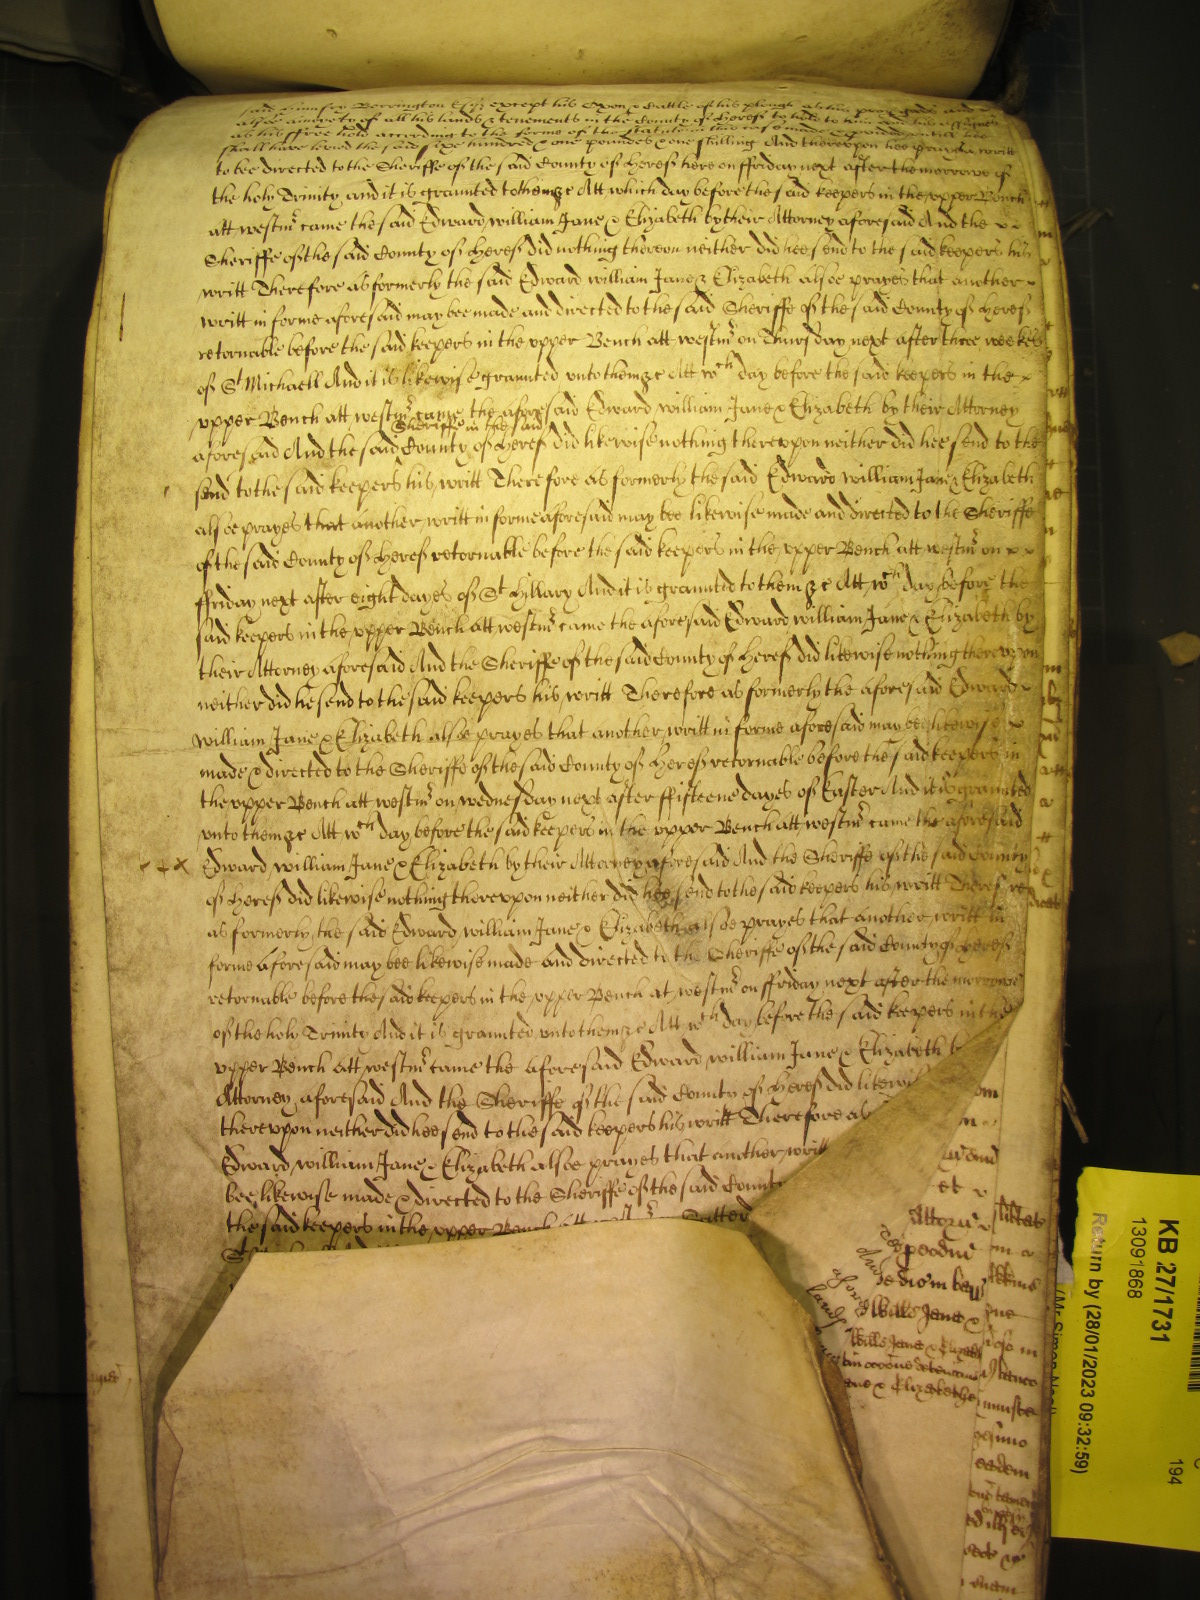 said Humfry Berrington Esqr except his Oxen & Cattle of his plough
alsoe a moiety of all his lands & tenements in the County of Heref to hold to him and his assignes
as his ffree hold according to the forme of the statute in this case made & provided untill hee
shall have levied the said sixe hundred & one poundes & one shilling And thereupon hee prayes a writt
to bee directed to the Sheriffe of the said County of Heref here on ffriday next after the morrowe of
the holy Trinity and it is graunted to them &c Att which day before the said keepers in the upper Bench
att westmr came the said Edward william Jane & Elizabeth by their Attorney aforesaid And the
Sheriffe of the said County of Heref did nothing thereon neither did hee send to the said keepers his
writt Therefore as formerly the said Edward william Jane & Elizabeth alsoe prayes that another
writt in forme aforesaid may bee made and directed to the said Sheriffe of the said County of Heref
retornable before the said keepers in the upper Bench att westmr on Thursday next after three weekes
of St Michaell And it is likewise graunted unto them &c Att wch day before the said keepers in the
upper Bench att westmr came the aforesaid Edward william Jane & Elizabeth by their Attorney
Sheriffe in the said
aforesaid And the said County of Heref did likewise nothing thereupon neither did hee send to the
send to the said keepers his writt Therefore as formerly the said Edward william Jane & Elizabeth
alsoe prayes that another writt in forme aforesaid may bee likewise made and directed to the Sheriffe
of the said County of Heref retornable before the said keepers in the upper Bench att westmr on
ffriday next after eight dayes of St Hillary And it is graunted to them &c Att wch day before the
said keepers in the upper Bench att westmr came the aforesaid Edward william Jane & Elizabeth by
their Attorney aforesaid And the Sheriffe of the said County of Heref did likewise nothing thereupon
neither did he send to the said keepers his writt Therefore as formerly the aforesaid Edward
william Jane & Elizabeth alsoe prayes that another writt in forme aforesaid may bee likewise
made & directed to the Sheriffe of the said County of Heref retornable before the said keepers in
the upper Bench att westmr on wednesday next after ffifteene dayes of Easter And it is graunted
unto them &c Att wch day before the said keepers in the upper Bench att westmr came the aforesaid
Edward william Jane & Elizabeth by their Attorney aforesaid And the Sheriffe of the said County
of Heref did likewise nothing thereupon neither did hee send to the said keepers his writt Therefore
as formerly the said Edward william Jane & Elizabeth alsoe prayes that another writt in
forme aforesaid may bee likewise made and directed to the Sheriffe of the said County of Heref
retornable before the said keepers in the upper Bench at westmr on ffriday next after the morrowe
of the holy Trinity And it is graunted unto them &c Att wch day before the said keepers in the
upper Bench att westmr came the aforesaid Edward william Jane & Elizabeth
Attorney aforesaid And the Sheriffe of the said County of Heref did likewi
thereupon neither did hee send to the said keepers his writt Therefore as
Edward william Jane & Elizabeth alsoe prayes that another writt
bee likewise made & directed to the Sheriffe of the said County
the said keepers in the upper Bench att westmr
KB 27/1731
13091868
Return by (28/01/2023 09:32:59)
194